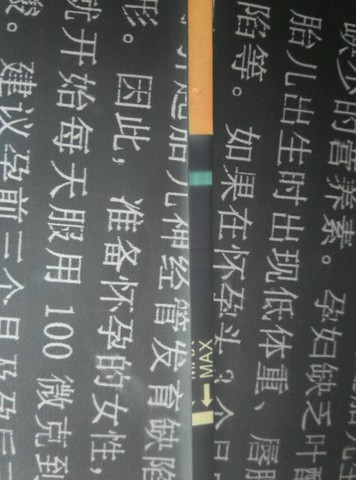 缺少的营养素。孕妇缺乏叶
胎儿出生时出现低体重、唇
陷等。如果在怀孕头3个
起胎儿神经管发育缺陷
形。因此,准备怀孕的女性,
就开始每天服用100微克到
建议孕前三个月及孕后三
MAX